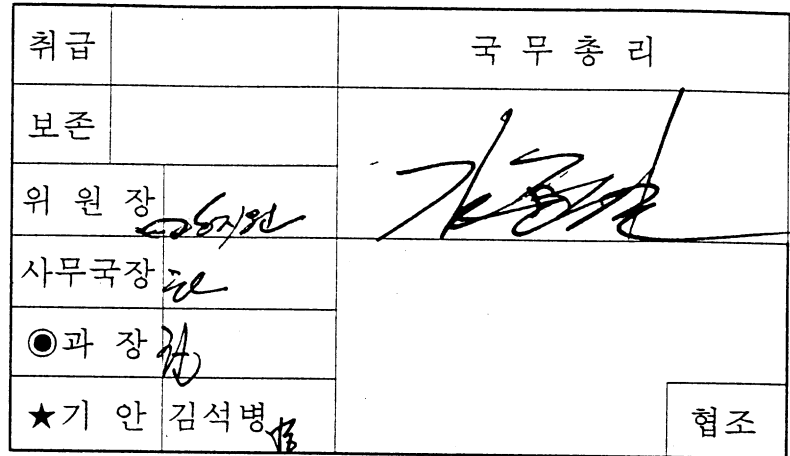 취급 국 무 총 리
보존
위 원 장
사무국장
◉과 장
★기 안 김석병
협조